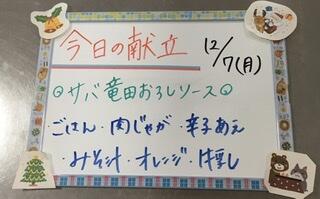 今日の献立
12/7(月)
サバ竜田おろしソース
ごはん・肉じゃが・辛子あえ
・みそ汁・オレンジ・牛乳